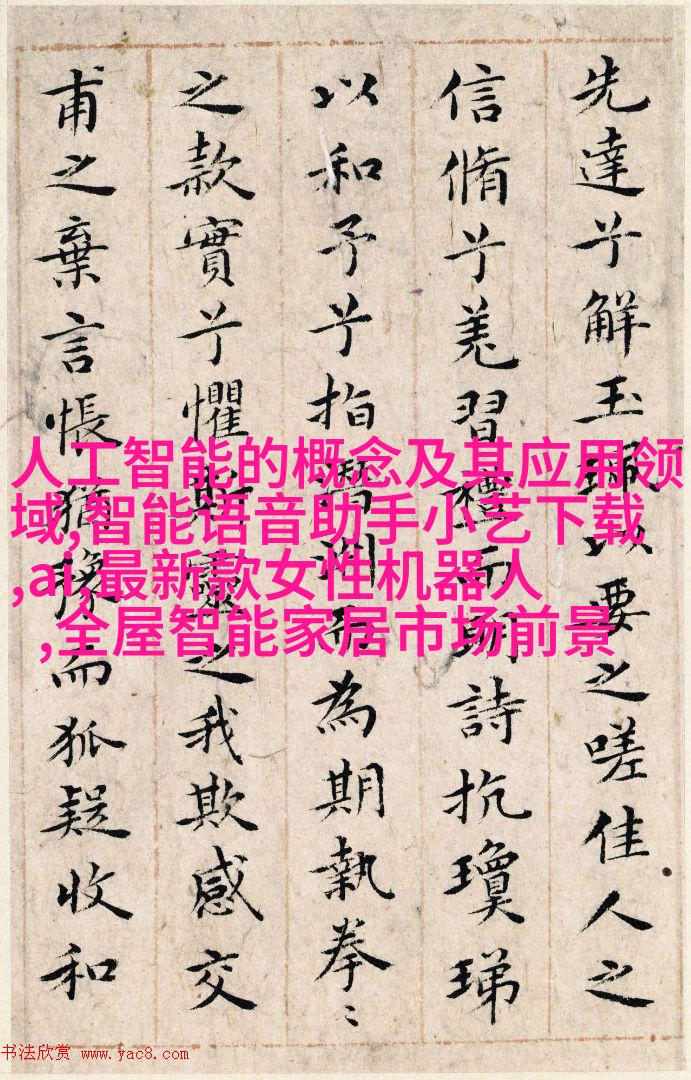 先達兮解玉珮以要之嗟佳人之
信脩兮羌習禮而明詩抗瓊珶
以和予兮指潛淵而為期執拳〻
之款實兮懼斯靈之我欺感交
甫之棄言悵猶豫而狐疑收和
人工智能的概念及其应用领
域,智能语音助手小艺下载
,ai,最新款女性机器人
,全屋智能家居市场前景
书法欣赏 www.yac8.com